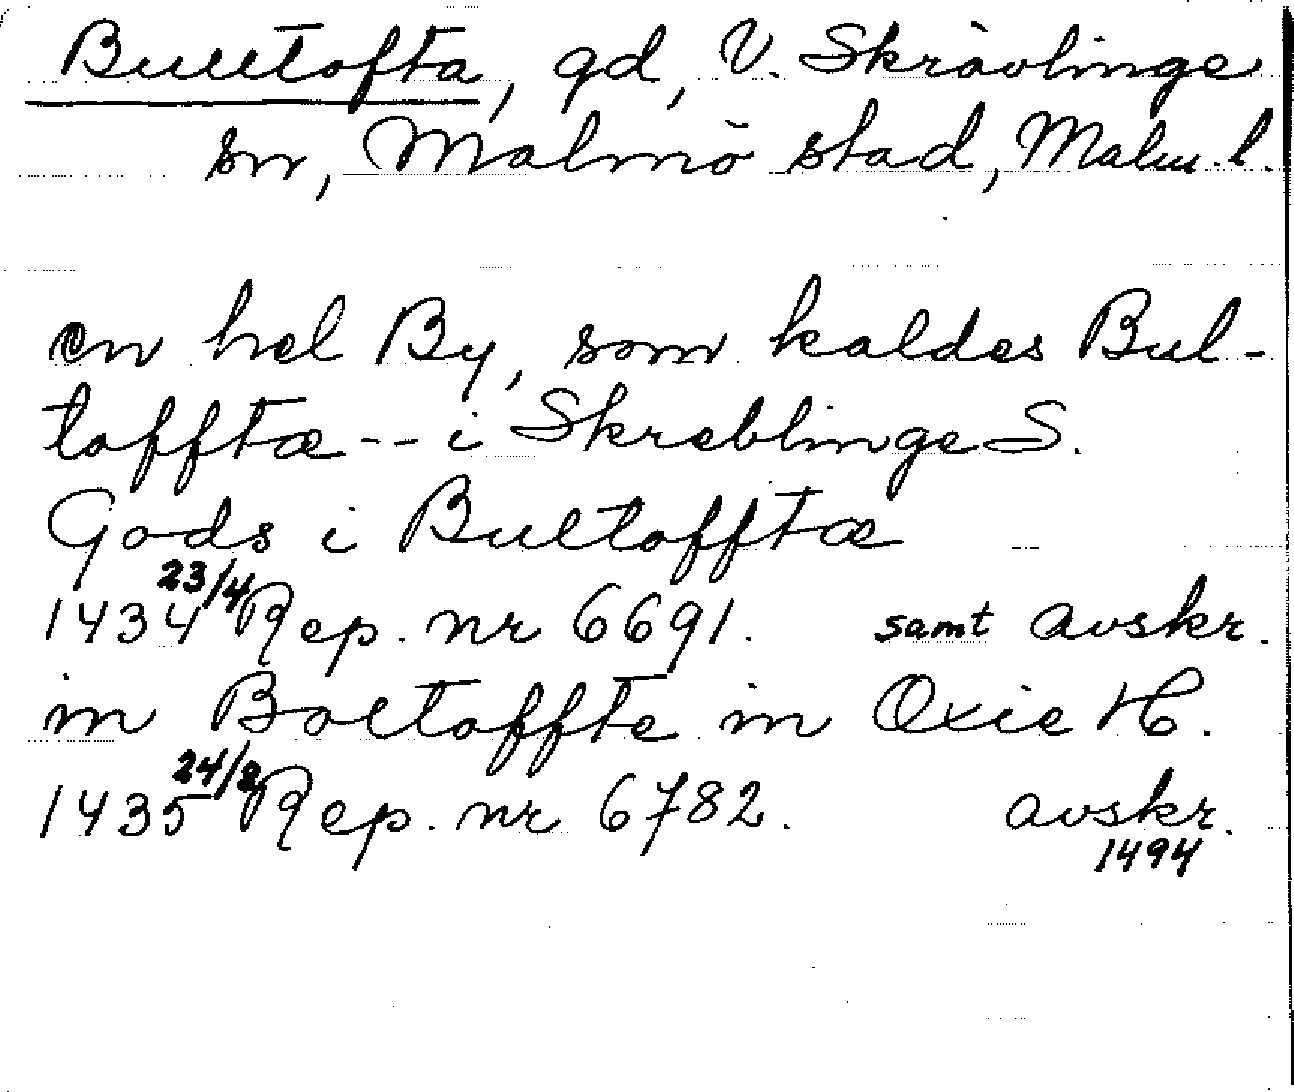 Bulltofta, gd, V. Skrävlinge
sn, Malmö stad, Malm. l.
en hel By, som kaldes Bul-
tofftæ -- i Skreblinge S.
Gods i Bultofftæ
1434 23/4 Rep. nr 6691. samt avskr.
in Boltoffte in Oxie H.
1435 24/8 Rep. nr 6782. avskr.
1494